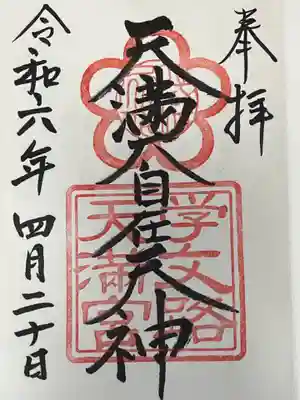 奉拝
天満大自在天神
学文路
天満宮
令和六年 四月二十日